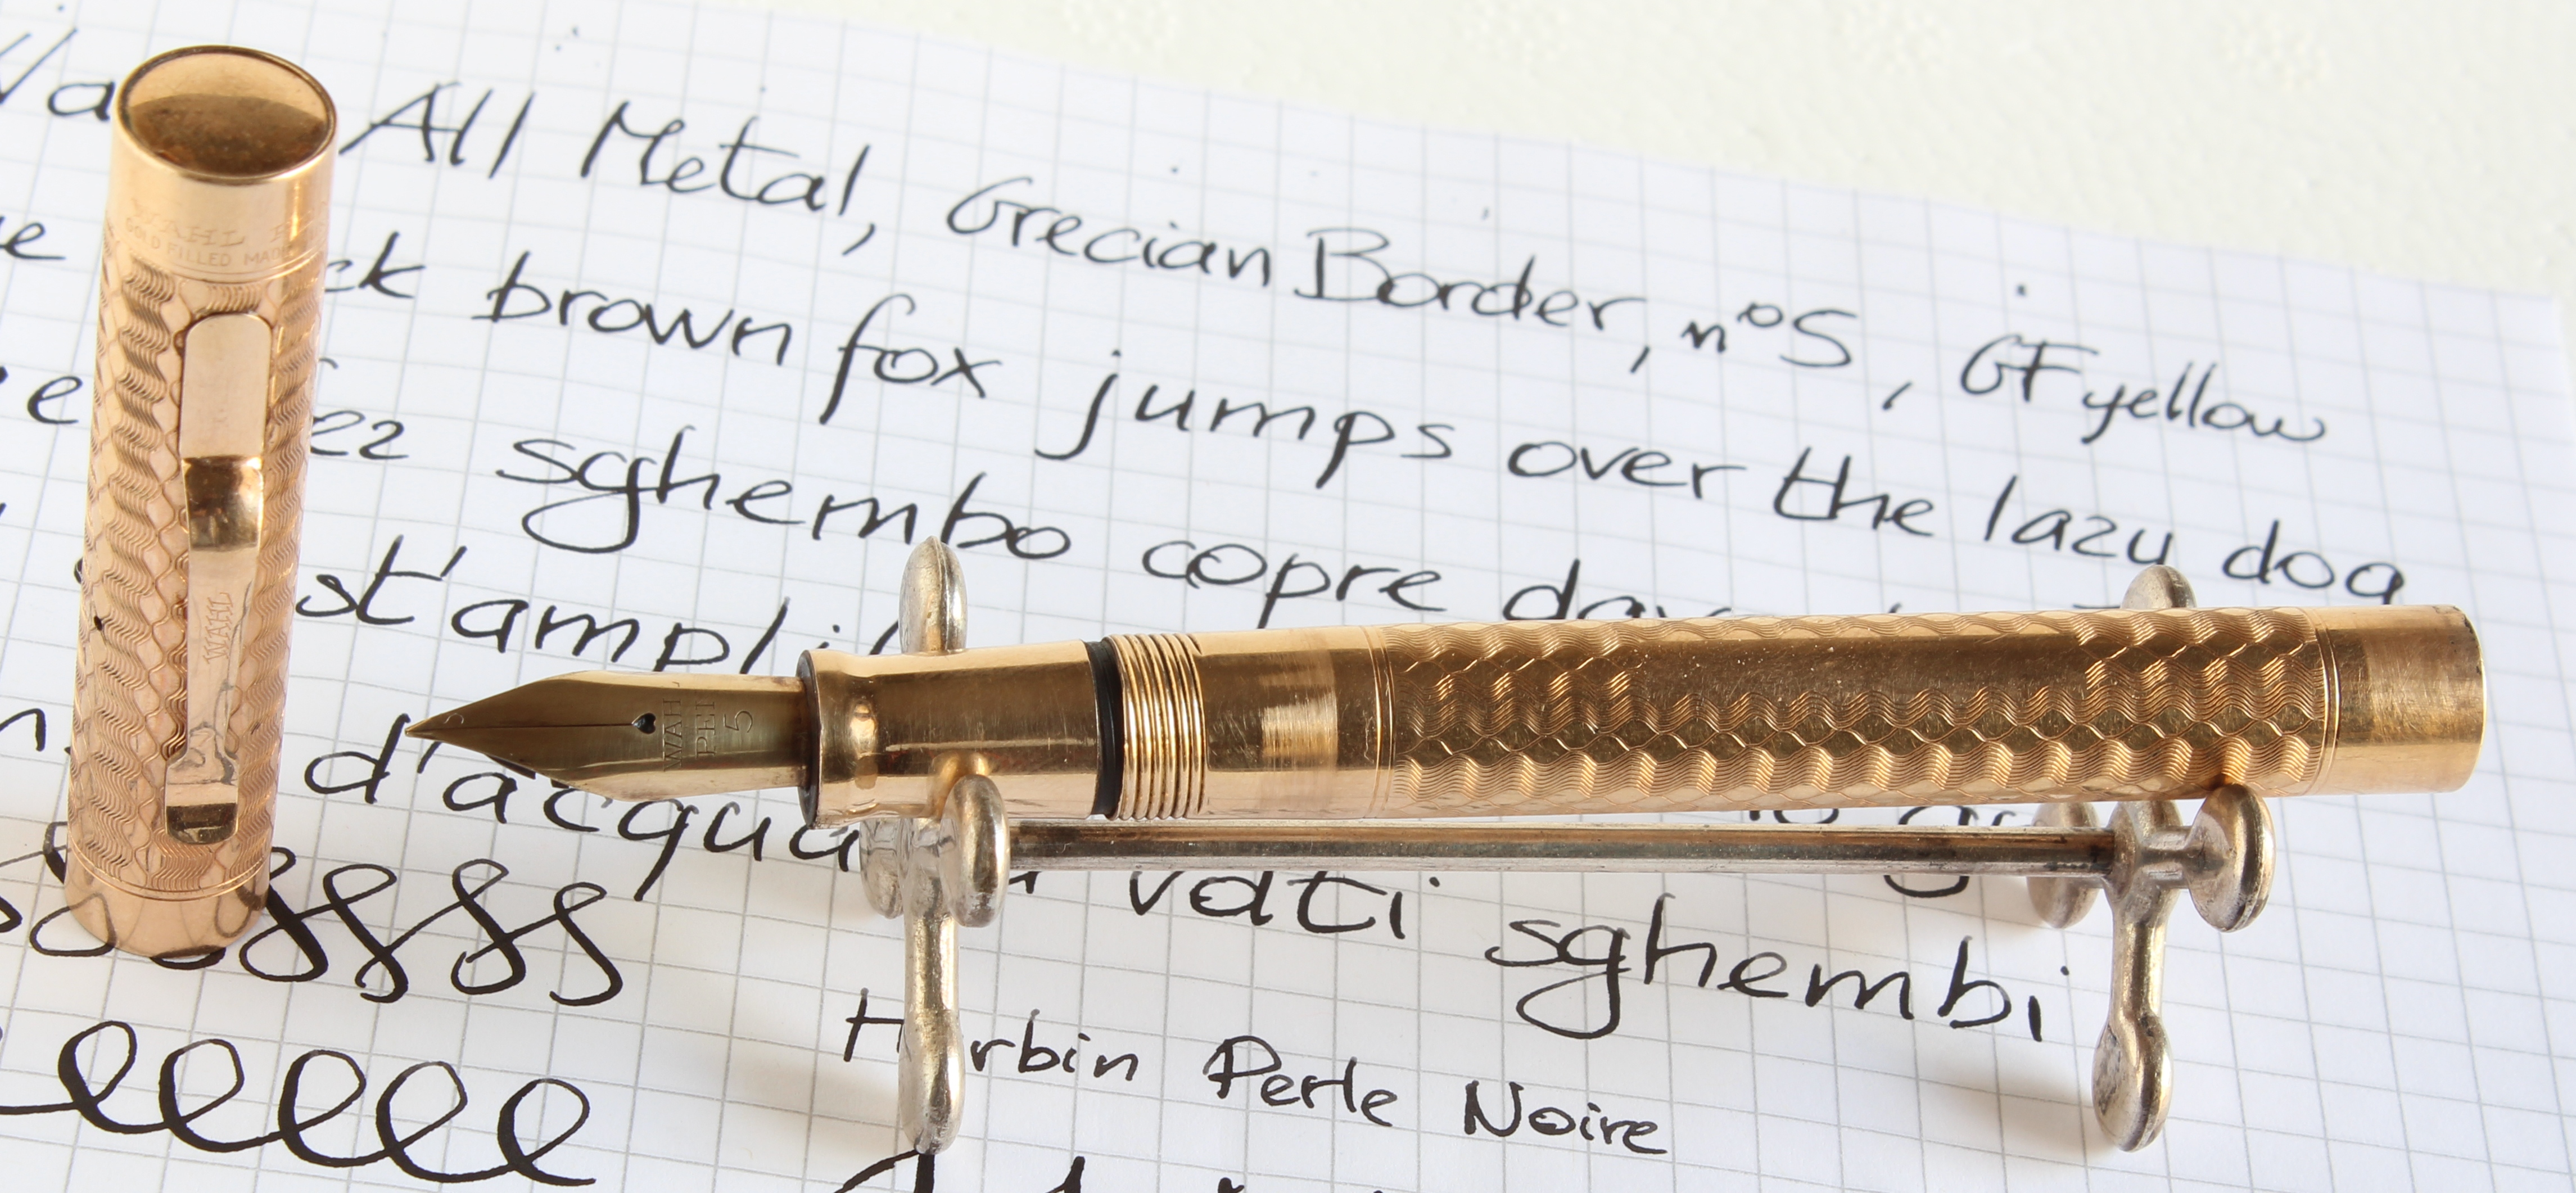 All Metal, Grecian Border, n°5, GF yellow
brown fox jumps over the lazy dog
sghembo copre
d'acqua vati sghembi
Herbin Perle Noire
WAHL
GOLD FILLED MADE
WAHL
WAHL
PEN
5